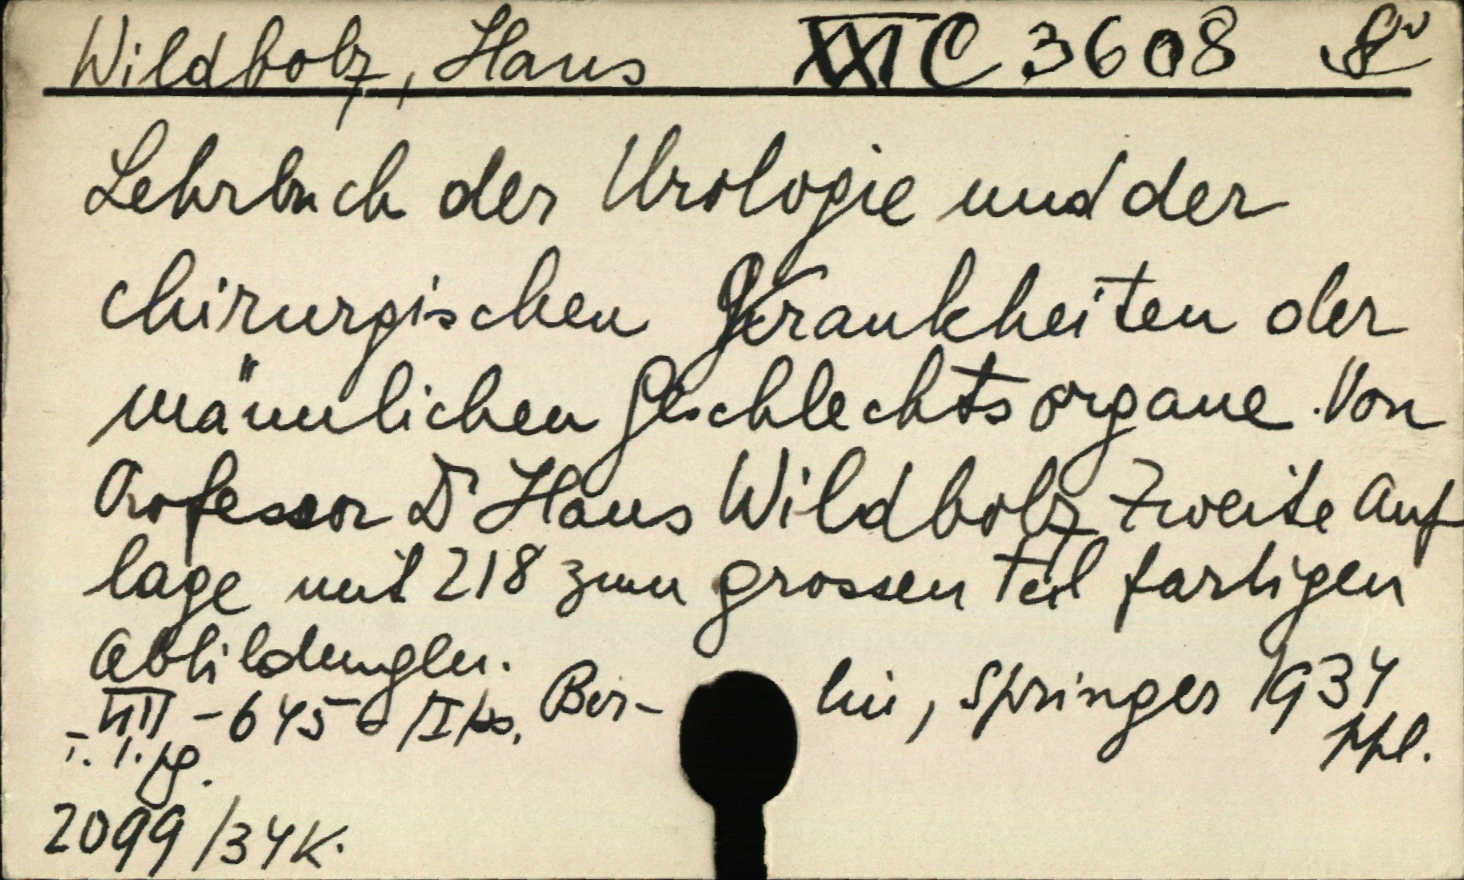 Wildbolz, Hans XXI C 3608 8°
Lehrbuch der Urologie und der
chirurgischen Krankheiten der
männlichen Geschlechtsorgane. Von
Professor Dr Hans Wildbolz Zweite Auf
lage mit 218 zum grossen Teil farbigen
Abbildungen.
VIII - 645 - /I/ Ber- lin, Springer 1934
ppl.
2099/34K.